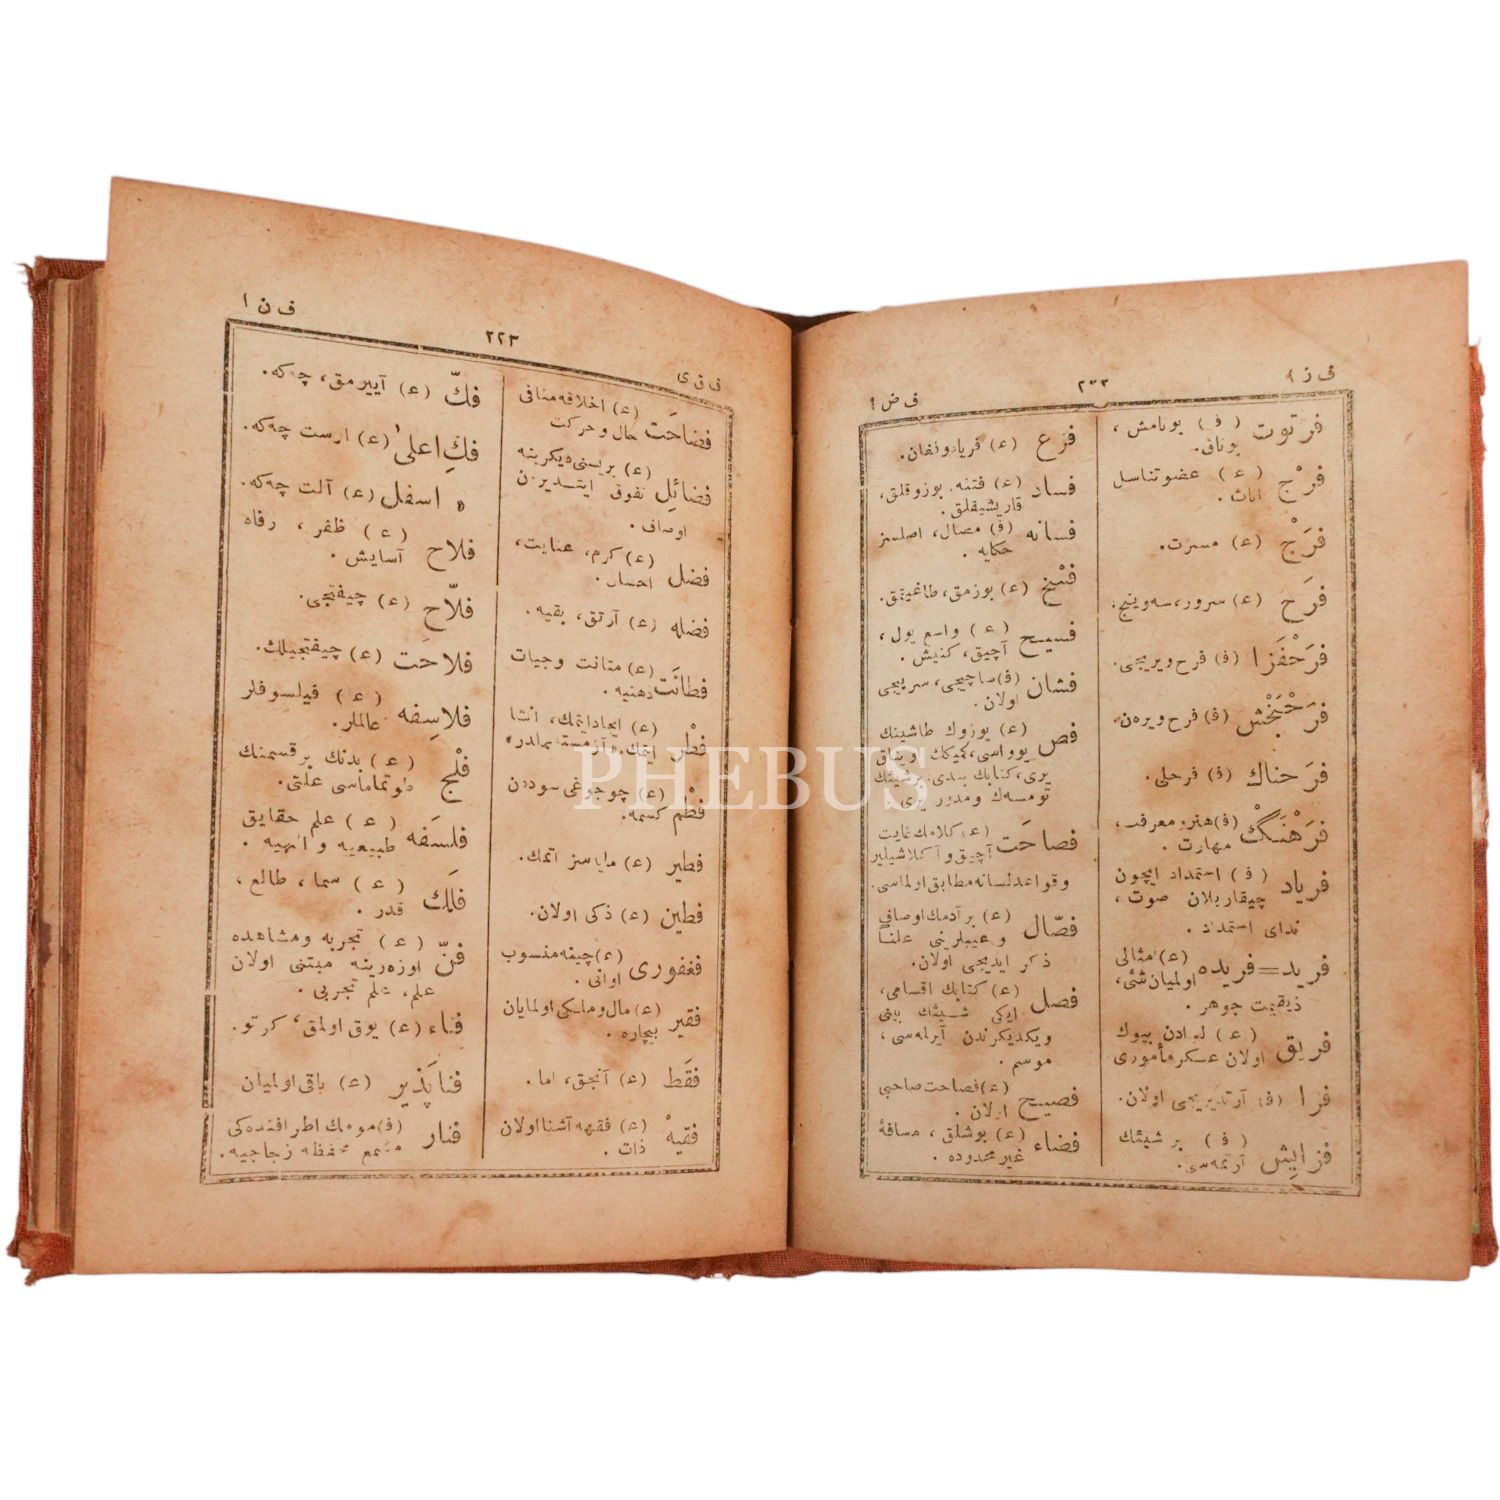 ف ز ا
ف ض ا
فرتوت (ف) بونامش،
بوناق.
فرْج (ع) عضو تناسل
اناث.
فرَجْ (ع) مسرت.
فرَح (ع) سرور، سه‌وینج.
فرَحْفَزا (ف) فرح ویریجی.
فرَحْبَخْش (ف) فرح ویره‌ن.
فرَحناك (ف) فرحلی.
فرَهْنَگْ (ف) هنر، معرفت،
مهارت.
فرياد (ف) استمداد ایچون
چیقاریلان صوت،
ندای استمداد.
فريد=فريده (ع) مثالی
اولمیان شئی،
ذیقیمت جوهر.
فريق (ع) لوادن بیوك
اولان عسکر مأموری
فزا (ف) آرتدیریجی اولان.
فزايش (ف) بر شیئك
آرتمه‌سی.
فزع (ع) فریاد و فغان.
فساد (ع) فتنه. بوزوقلق،
قاریشیقلق.
فسانه (ف) مصال، اصلسز
حکایه.
فسْخ (ع) بوزمق، طاغیتمق.
فسيح (ع) واسع یول،
آچیق، کنیش.
فشان (ف) صاچیجی، سرپیجی
اولان.
فص (ع) یوزوك طاشینك
یوواسی، کمیکك اویناق
یری، کتابك بندی. برشیئك
تومسه‌ك ومدور یری.
فصاحَت (ع) کلامك غایت
آچیق و آکلاشیلیر
وقواعد لسانه مطابق اولماسی.
فصّال (ع) بر آدمك اوصافی
و عیبلرینی علناً
ذکر ایدیجی اولان.
فصل (ع) کتابك اقسامی،
ایکی شیئك بینی
ویکدیکرندن آیرلمه‌سی،
موسم.
فصيح (ع) فصاحت صاحبی
اولان.
فضاء (ع) بوشلق، مسافهٔ
غیر محدوده.
ف ق ی
٢٢٣
ف ن ا
فضاحَت (ع) اخلاقه منافی
حال و حرکت
فضائِل (ع) بریسنی دیکرینه
تفوق ایتدیرن
اوصاف.
فضل (ع) کرم، عنایت،
احسان.
فضله (ع) آرتق، بقیه.
فطانَت (ع) متانت وجیات
ذهنیه.
فطْر (ع) ایجاد ایتمك، انشا
ایتمك.
فطْم (ع) چوجوغی سوددن
کسمه.
فطير (ع) مایاسز اتمك.
فطين (ع) ذکی اولان.
فغفوری (ع) چینه منسوب
اوانی.
فقير (ع) مال وملکی اولمایان
بیچاره.
فقَط (ع) آنجق، اما.
فقيهْ (ع) فقهه آشنا اولان
ذات.
فكّ (ع) آییرمق، چه‌که.
فكِ اعلىٰ (ع) اوست چه‌که.
» اسفل (ع) آلت چه‌که.
فلاح (ع) ظفر، رفاه
آسایش.
فلّاح (ع) چیفتجی.
فلاحَت (ع) چیفتجیلك.
فلاسِفه (ع) فیلسوفلر
عالملر.
فلْج (ع) بدنك بر قسمنك
طوتماماسی علتی.
فلسَفه (ع) علم حقایق
طبیعیه و الهیه.
فلَك (ع) سما، طالع،
قدر.
فنّ (ع) تجربه ومشاهده
اوزه‌رینه مبتنی اولان
علم، علم تجربی.
فناء (ع) یوق اولمق، کرتو.
فناپَذير (ع) باقی اولمیان
فنار (ف) مومك اطرافنده‌کی
مشمع محفظه زجاجیه.
PHEBUS